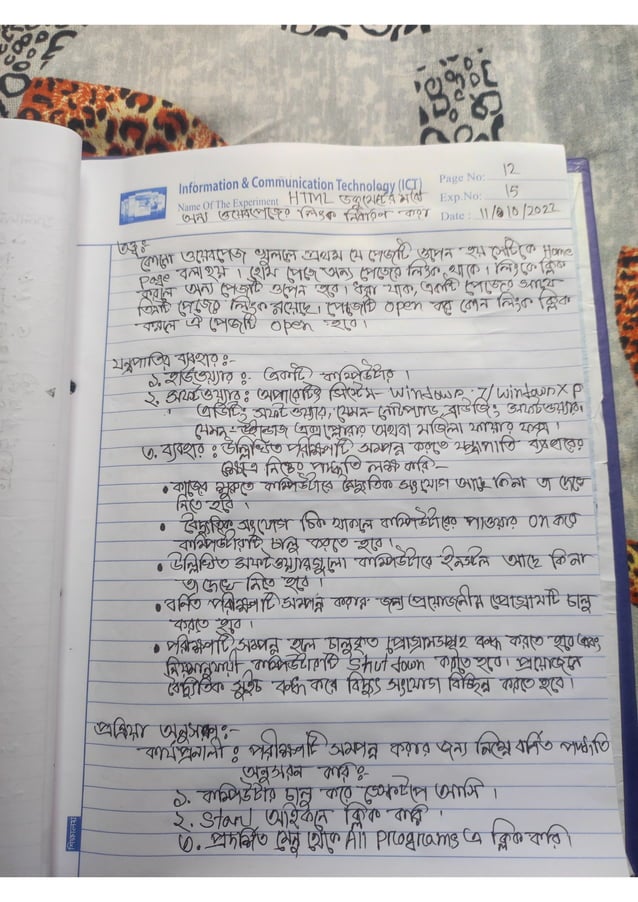 Information & Communication Technology (ICT)
Page No: 12
Name Of The Experiment HTML ডকুমেন্টের মধ্যে
Exp.No: 15
অন্য ওয়েবপেজের লিংক নির্ধারণ করা
Date : 11/10/2022
তত্ত্ব:
কোনো ওয়েবপেজ খুললে প্রথম যে পেজটি ওপেন হয় সেটিকে Home
Page বলা হয়। হোম পেজে অন্য পেজের লিংক থাকে। লিংকে ক্লিক
করলে অন্য পেজটি ওপেন হবে। ধরা যাক, একটি পেজের সাথে
তিনটি পেজের লিংক রয়েছে। পেজটি open করে কোন লিংক ক্লিক
করলে ঐ পেজটি open হবে।
যন্ত্রপাতির ব্যবহার:-
১. হার্ডওয়্যার:- একটি কম্পিউটার।
২. সফটওয়্যার: অপারেটিং সিস্টেম- Windows 7/ Windows XP
এডিটিং সফটওয়্যার, যেমন- নোটপ্যাড, ব্রাউজিং সফটওয়্যার।
যেমন- ইন্টারনেট এক্সপ্লোরার অথবা মজিলা ফায়ার ফক্স।
৩. ব্যবহার: উল্লিখিত পরীক্ষণটি সম্পন্ন করতে যন্ত্রপাতি ব্যবহারের
ক্ষেত্রে নিম্নের পদ্ধতি লক্ষ করি:-
• কাজের শুরুতে কম্পিউটারে বৈদ্যুতিক সংযোগ আছে কিনা তা দেখে
নিতে হবে।
• বৈদ্যুতিক সংযোগ ঠিক থাকলে কম্পিউটারের পাওয়ার on করে
কম্পিউটারটি চালু করতে হবে।
• উল্লিখিত সফটওয়্যারগুলো কম্পিউটারে ইনস্টল আছে কিনা
তা দেখে নিতে হবে।
• বর্ণিত পরীক্ষণটি সম্পন্ন করার জন্য প্রয়োজনীয় প্রোগ্রামটি চালু
করতে হবে।
• পরীক্ষণটি সম্পন্ন হলে চালুকৃত প্রোগ্রামসমূহ বন্ধ করতে হবে এবং
নিয়মানুযায়ী কম্পিউটারটি Shut down করতে হবে। প্রয়োজনে
বৈদ্যুতিক সুইচ বন্ধ করে বিদ্যুৎ সংযোগ বিচ্ছিন্ন করতে হবে।
প্রক্রিয়া অনুসরণ:-
কার্যপ্রণালী: পরীক্ষণটি সম্পন্ন করার জন্য নিম্নে বর্ণিত পদ্ধতি
অনুসরন করি:-
১. কম্পিউটার চালু করে ডেস্কটপে আসি।
২. Start আইকনে ক্লিক করি।
৩. প্রদর্শিত মেনু থেকে All Programs এ ক্লিক করি।